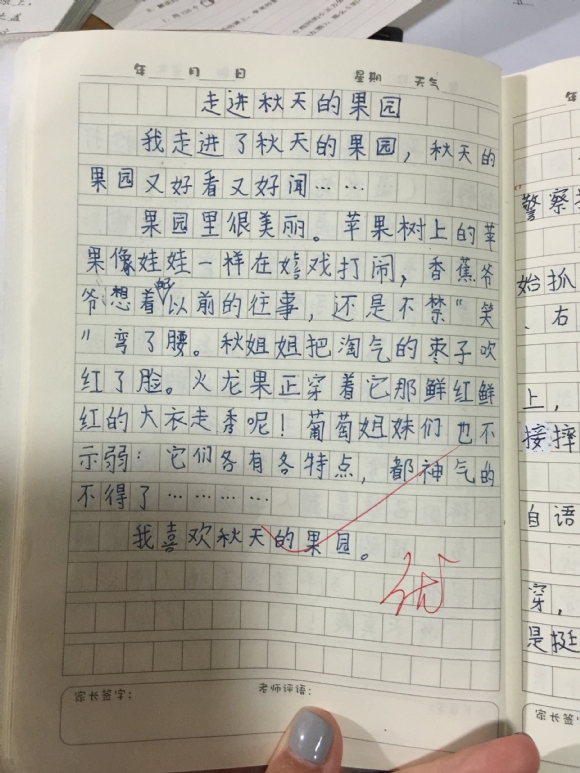 年 月 日 星期 天气
走进秋天的果园
我走进了秋天的果园，秋天的
果园又好看又好闻……
果园里很美丽。苹果树上的苹
果像娃娃一样在嬉戏打闹，香蕉爷
爷想着以前的往事，还是不禁“笑
”弯了腰。秋姐姐把淘气的枣子吹
红了脸。火龙果正穿着它那鲜红鲜
红的大衣走秀呢！葡萄姐妹们也不
示弱：它们各有各特点，都神气的
不得了…………
我喜欢秋天的果园。
优
家长签字： 老师评语：
年
警察
始抓
、右
上，
接摔
自语
穿，
是挺
家长签字：